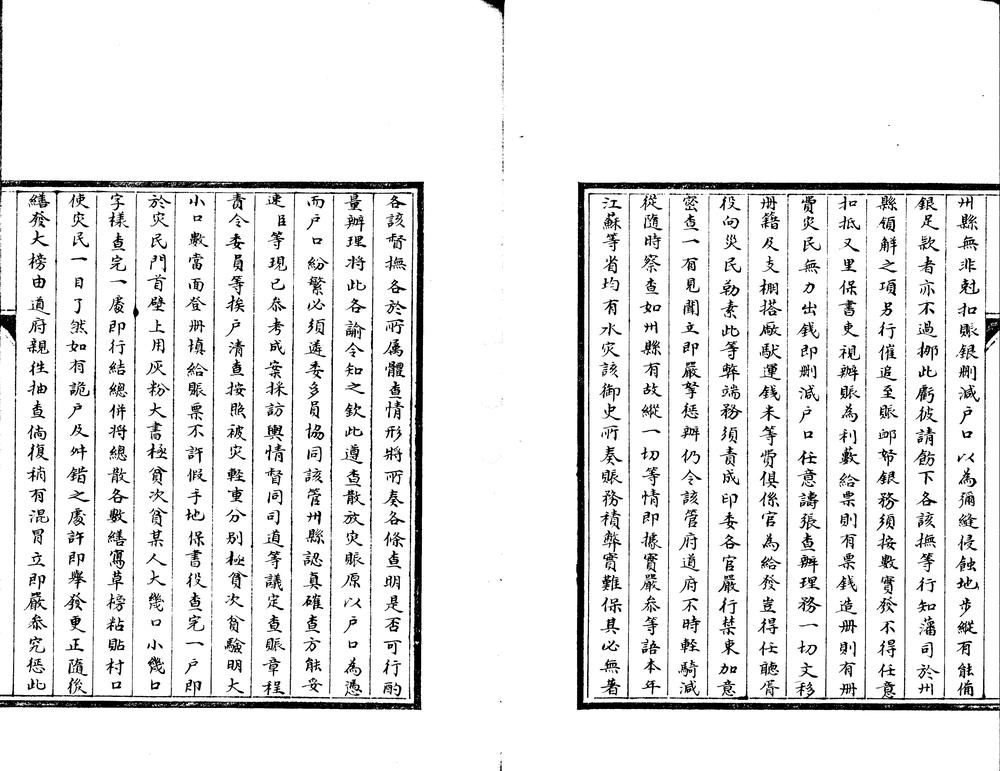 州縣無非尅扣賑銀刪減戶口以為彌縫侵蝕地步縱有能備
銀足款者亦不過挪此虧彼請飭下各該撫等行知藩司於州
縣領解之項另行催追至賑邮帑銀務須按數實發不得任意
扣抵又里保書吏視辦賑為利藪給票則有票錢造冊則有冊
費災民無力出錢即刪減戶口任意譸張查辦理務一切文移
冊籍及支棚搭廠馱運錢米等費俱係官為給發豈得任聽胥
役向災民勒索此等弊端務須責成印委各官嚴行禁束加意
密查一有見聞立即嚴拏懲辦仍令該管府道府不時輕騎減
從隨時察查如州縣有故縱一切等情即據實嚴叅等語本年
江蘇等省均有水灾該御史所奏賑務積弊實難保其必無著
各該督撫各於所属體查情形將所奏各條查明是否可行酌
量辦理將此各諭令知之欽此遵查散放灾賑原以戶口為憑
而戶口紛繁必須遴委多員協同該管州縣認真確查方能妥
速臣等現已叅考成案採訪輿情督同司道等議定查賑章程
責令委員等挨戶清查按照被災輕重分別極貧次貧驗明大
小口數當面登冊填給賑票不許假手地保書役查完一戶即
於灾民門首壁上用灰粉大書極貧次貧某人大幾口小幾口
字樣查完一處即行結總併將總散各數繕寫草榜粘貼村口
使灾民一目了然如有詭戶及舛錯之處許即舉發更正隨後
繕發大榜由道府親徃抽查倘復稍有混冒立即嚴叅究懲此